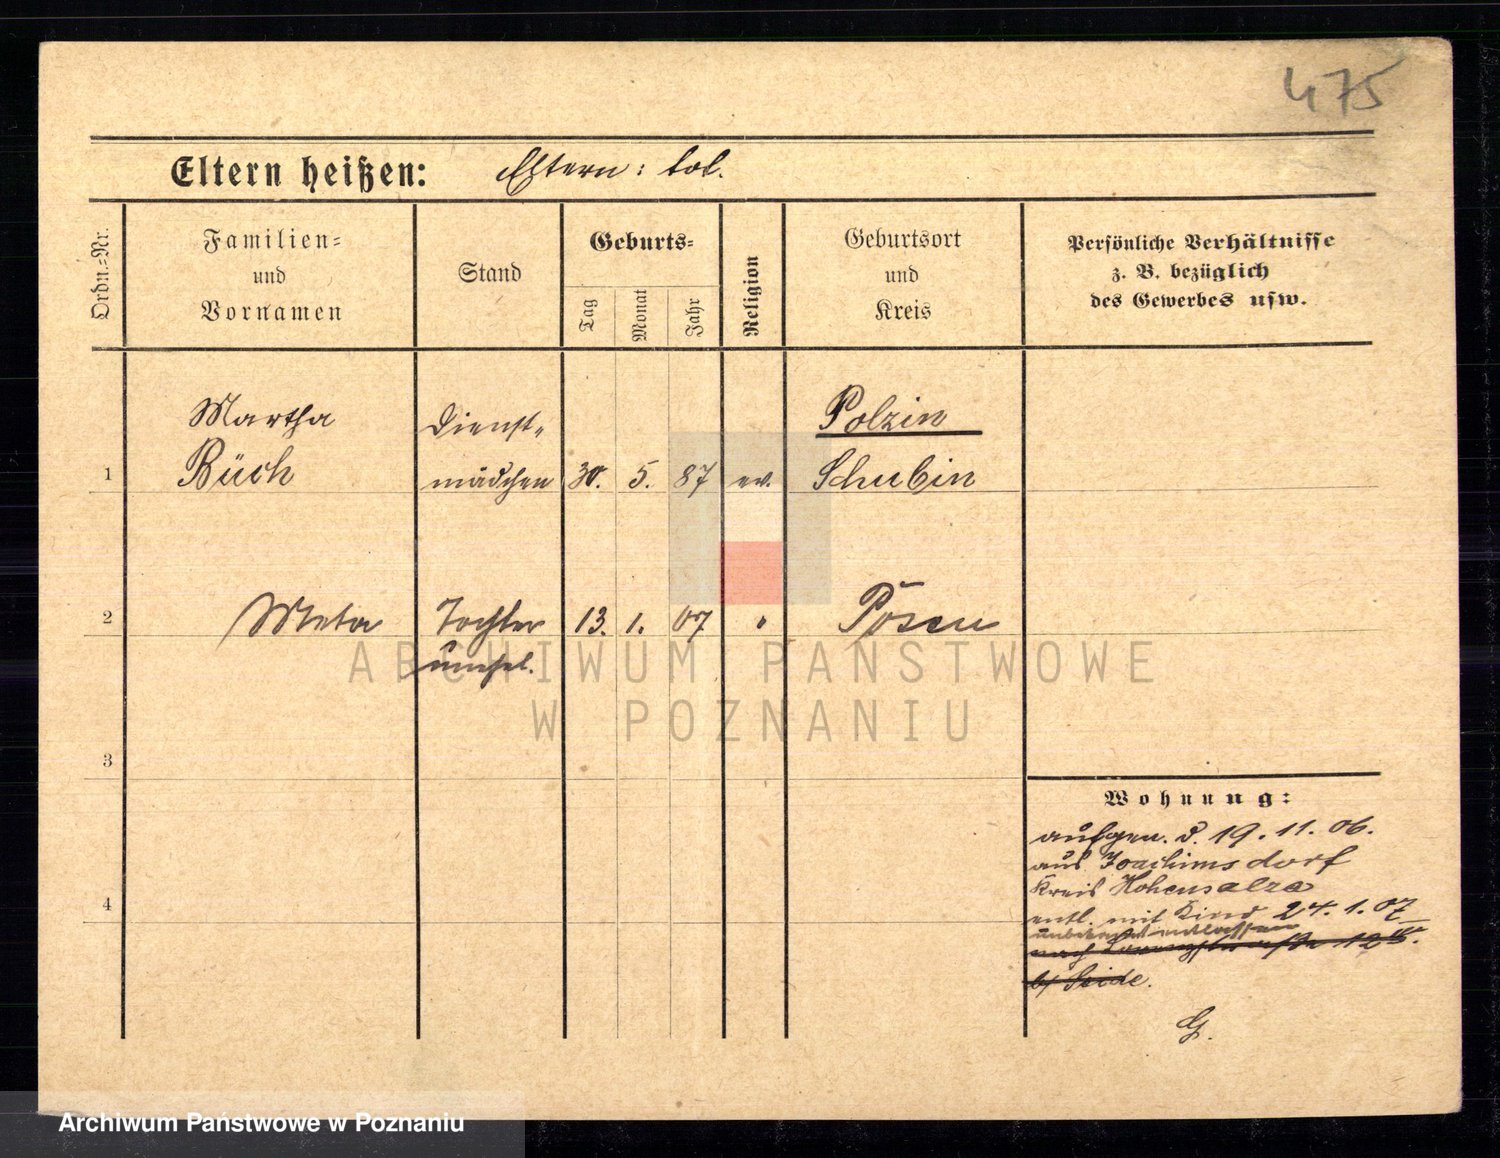 475
Eltern heißen: Eltern: tot.
Ordn.-Nr.
Familien-
und
Vornamen
Stand
Geburts-
Tag
Monat
Jahr
Religion
Geburtsort
und
Kreis
Persönliche Verhältnisse
z. B. bezüglich
des Gewerbes usw.
Martha Dienst- Polzin
1 Büch mädchen 30. 5. 87 ev. Schubin
2 Meta Tochter 13. 1. 07 " Posen
unehel.
ARCHIWUM PAŃSTWOWE
W POZNANIU
3
Wohnung:
aufgen. d. 19. 11. 06.
aus Joachimsdorf
Kreis Hohensalza
4
entl. mit Kind 24. 1. 07
entlassen
nach 12
b/ Seide.
G.
Archiwum Państwowe w Poznaniu